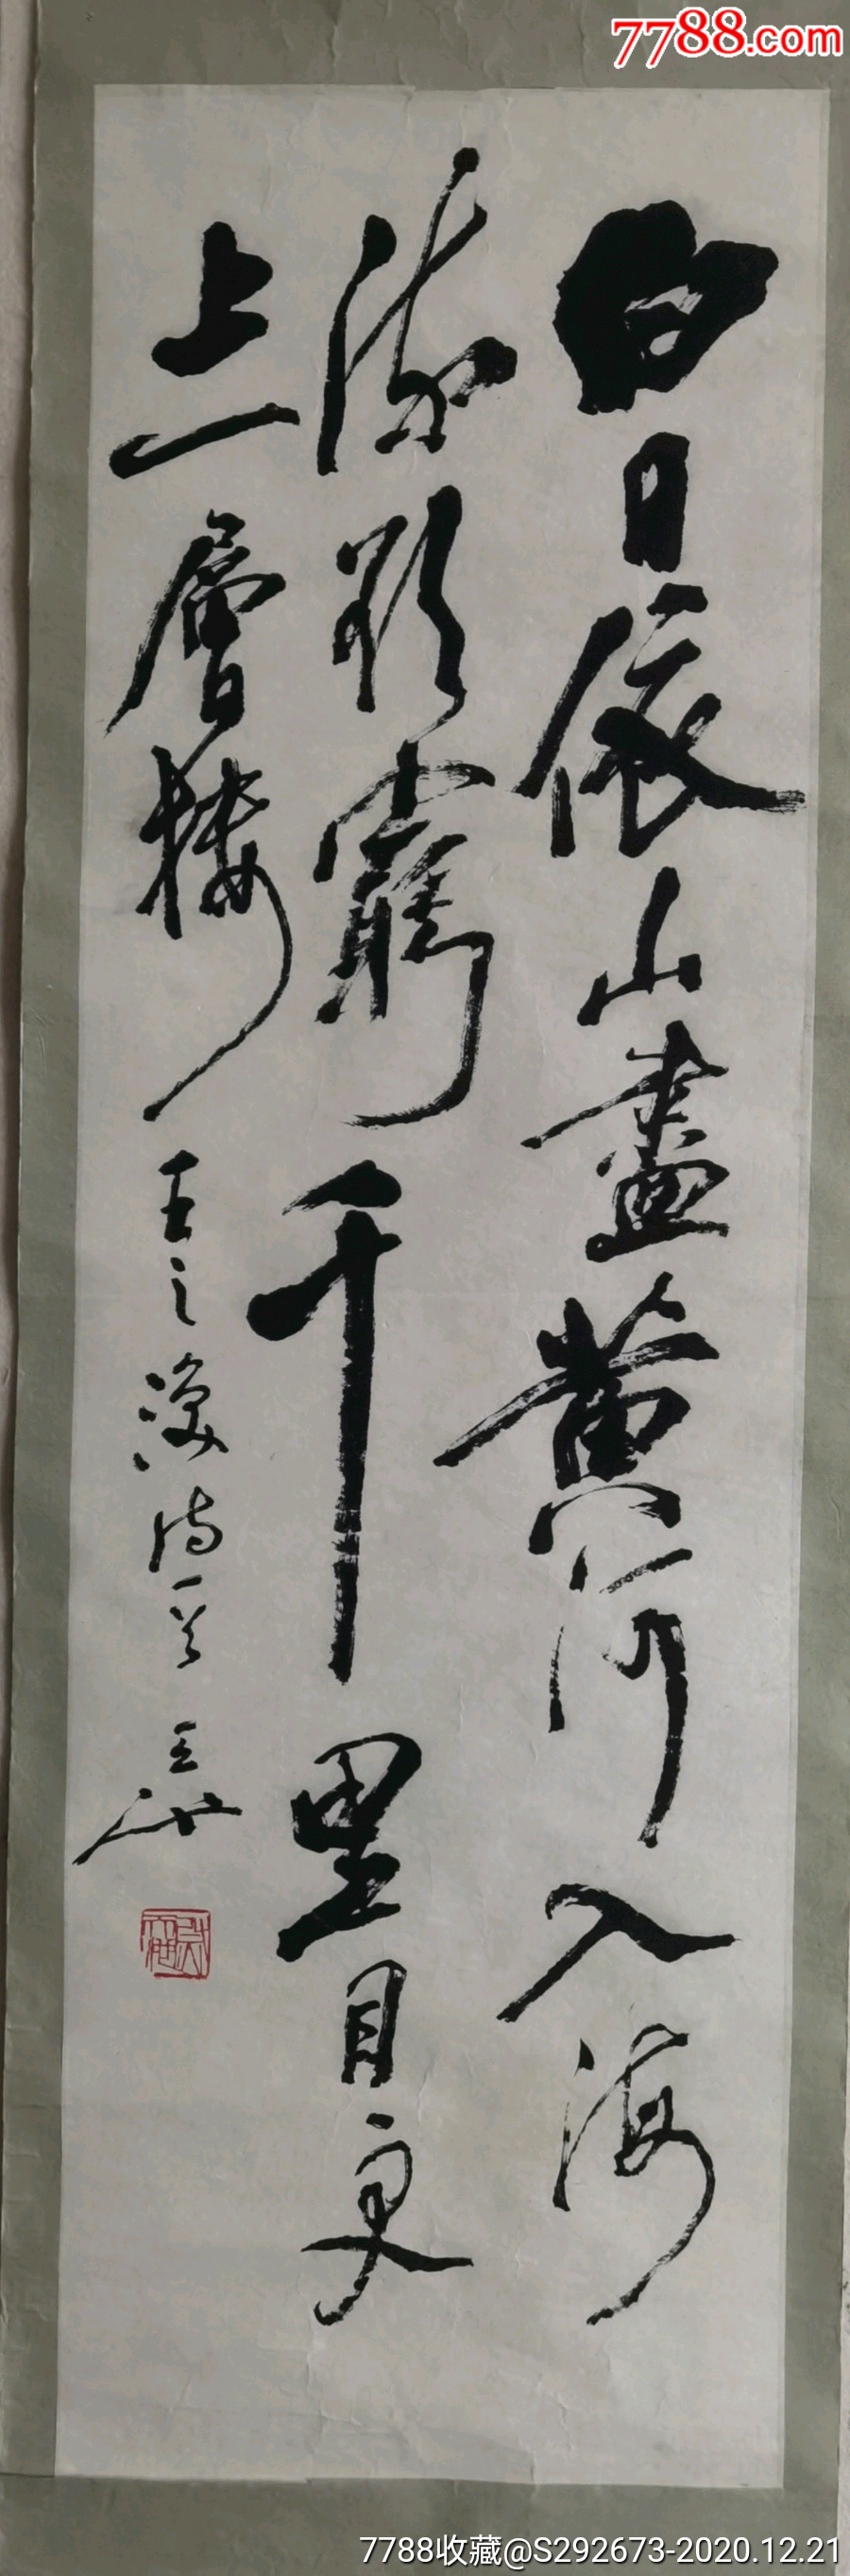 7788.com
白日依山盡黄河入海
流欲窮千里目更
上一層樓
王之涣詩一首
7788收藏@S292673-2020.12.21